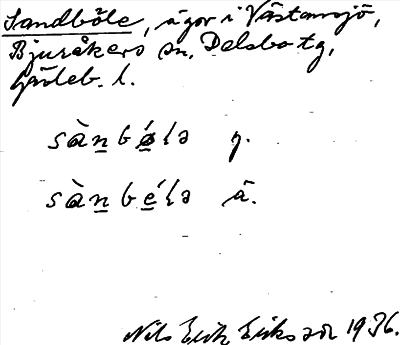 Sandböle, ägor i Västansjö,
Bjuråkers sn, Delsbo tg,
Gävleb. l.
sànbǿlə y.
sànbélə ä.
Nils Erik Eriksson 1936.